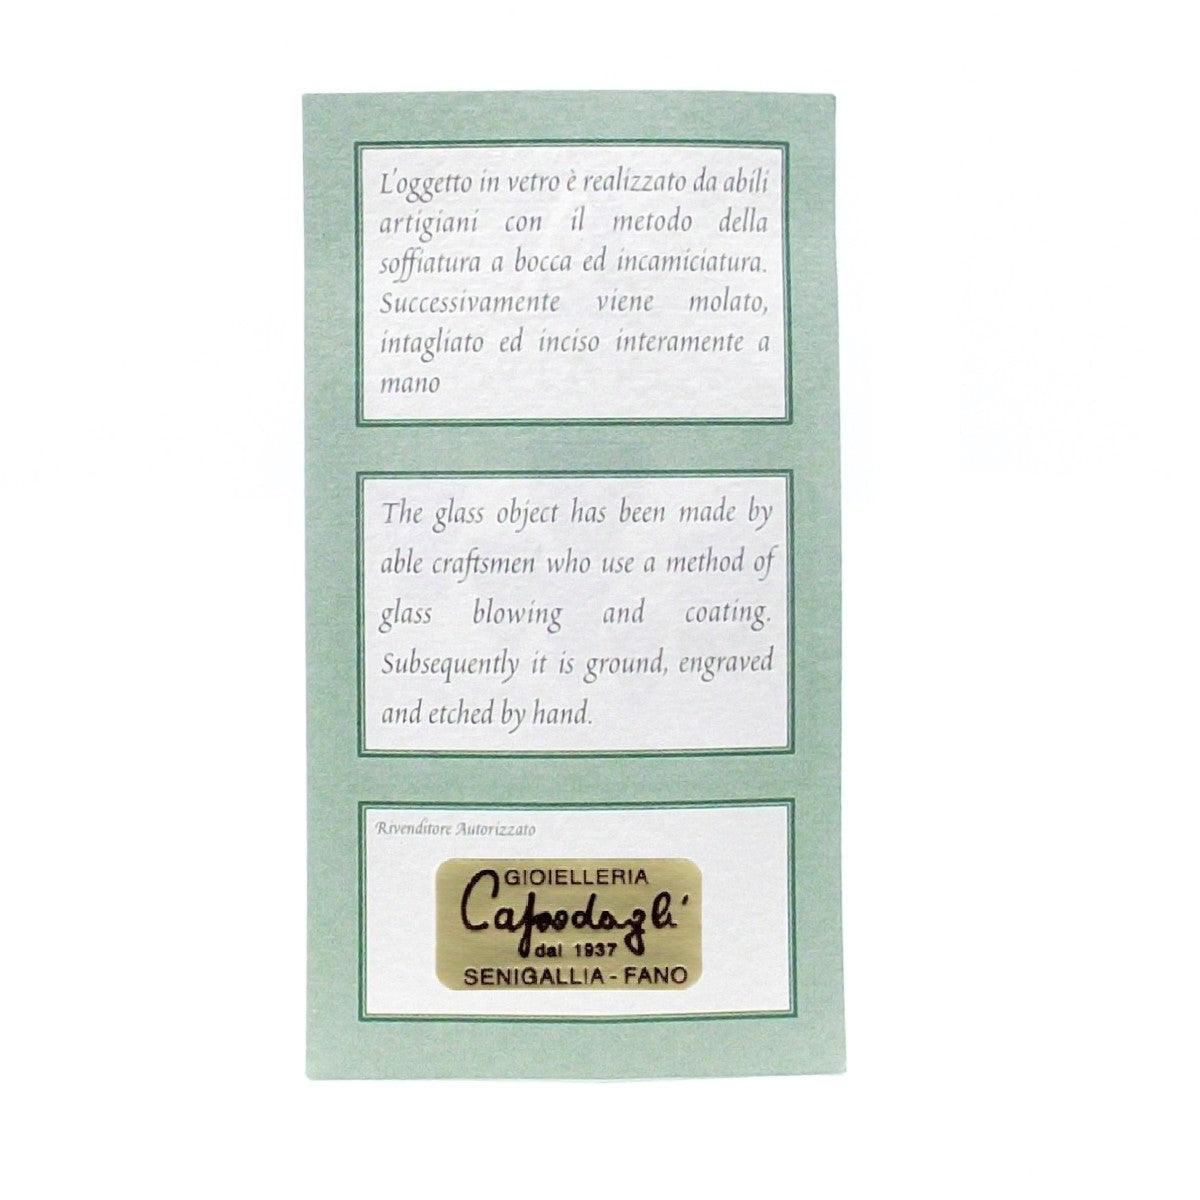 L'oggetto in vetro è realizzato da abili
artigiani con il metodo della
soffiatura a bocca ed incamiciatura.
Successivamente viene molato,
intagliato ed inciso interamente a
mano
The glass object has been made by
able craftsmen who use a method of
glass blowing and coating.
Subsequently it is ground, engraved
and etched by hand.
Rivenditore Autorizzato
GIOIELLERIA
Capodagli
dal 1937
SENIGALLIA - FANO